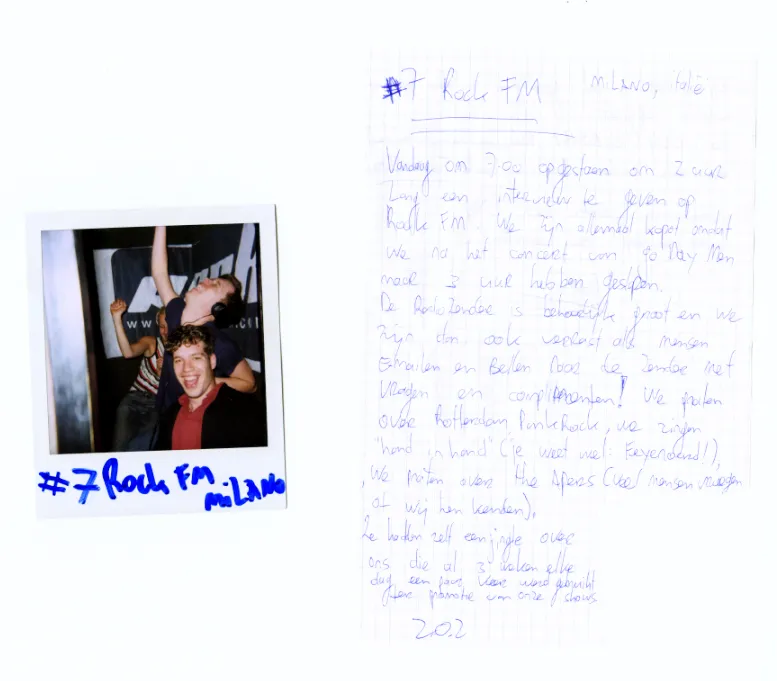 #7 Rock FM
MiLANO
www.
.com
#7 Rock FM MiLANO, italië
Vandaag om 7.00 opgestaan om 2 uur
lang een interview te geven op
Rock FM. We zijn allemaal kapot omdat
we na het concert van 90 Day Men
maar 3 uur hebben geslapen.
De Radiozender is behoorlijk groot en we
zijn dan ook verrast alle mensen
Emailen en Bellen naar de zender met
vragen en complimenten! We praten
over Rotterdam PunkRock, we zingen
"hand in hand" (je weet wel: Feyenoord!),
We praten over the Apers (veel mensen vroegen
of wij hen kenden),
Ze hadden zelf een jingle over
ons die al 3 weken elke
dag een paar keer werd gebruikt
promotie van onze shows
202